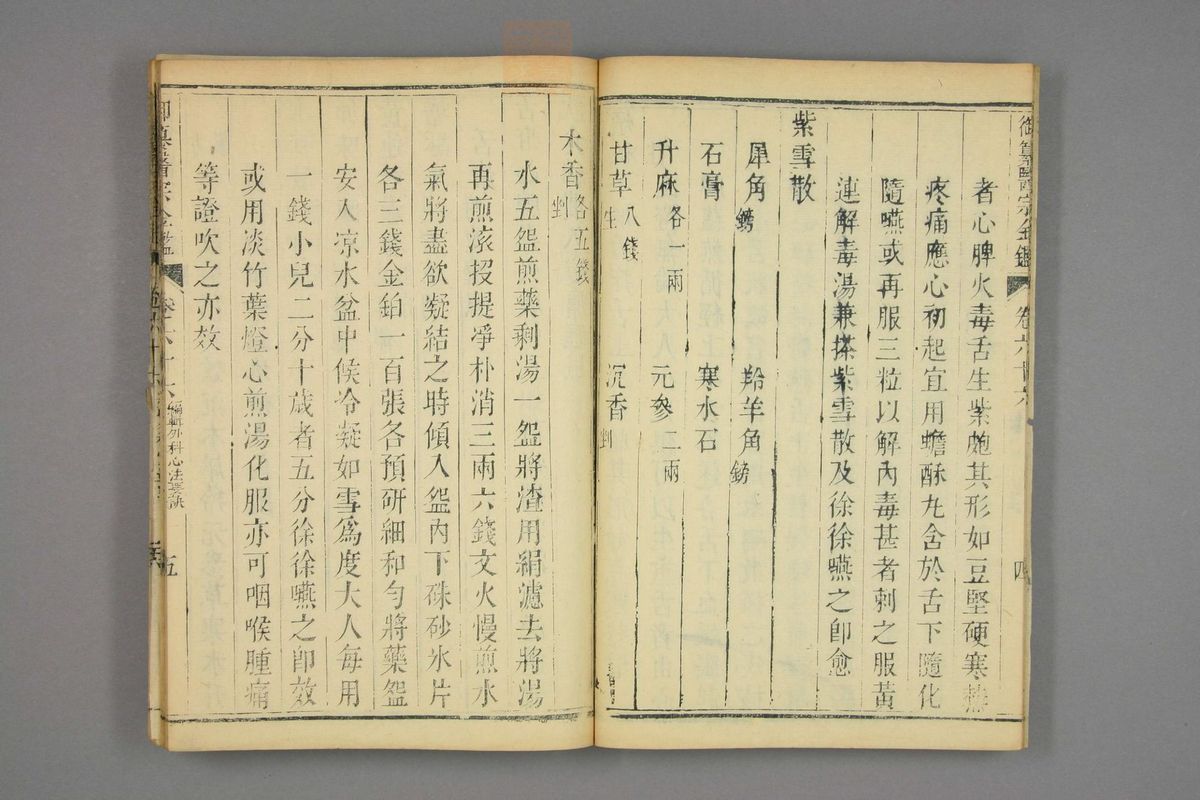 御纂醫宗金鑑 卷六十六 四
者心脾火毒舌生紫皰其形如豆堅硬寒熱
疼痛應心初起宜用蟾酥丸含於舌下隨化
隨嚥或再服三粒以解內毒甚者刺之服黃
連解毒湯兼搽紫雪散及徐徐嚥之卽愈
紫雪散
犀角 鎊 羚羊角 鎊
石膏 寒水石
升麻 各一兩 元參 二兩
甘草 八錢 生 沉香 剉
木香 各五錢 剉
水五盌煎藥剩湯一盌將渣用絹濾去將湯
再煎滚投提凈朴消三兩六錢文火慢煎水
氣將盡欲凝結之時傾入盌內下硃砂氷片
各三錢金鉑一百張各預研細和勻將藥盌
安入凉水盆中候冷凝如雪爲度大人每用
一錢小兒二分十歲者五分徐徐嚥之卽效
或用淡竹葉燈心煎湯化服亦可咽喉腫痛
等證吹之亦效
御纂醫宗金鑑 卷六十六 編輯外科心法要訣 五